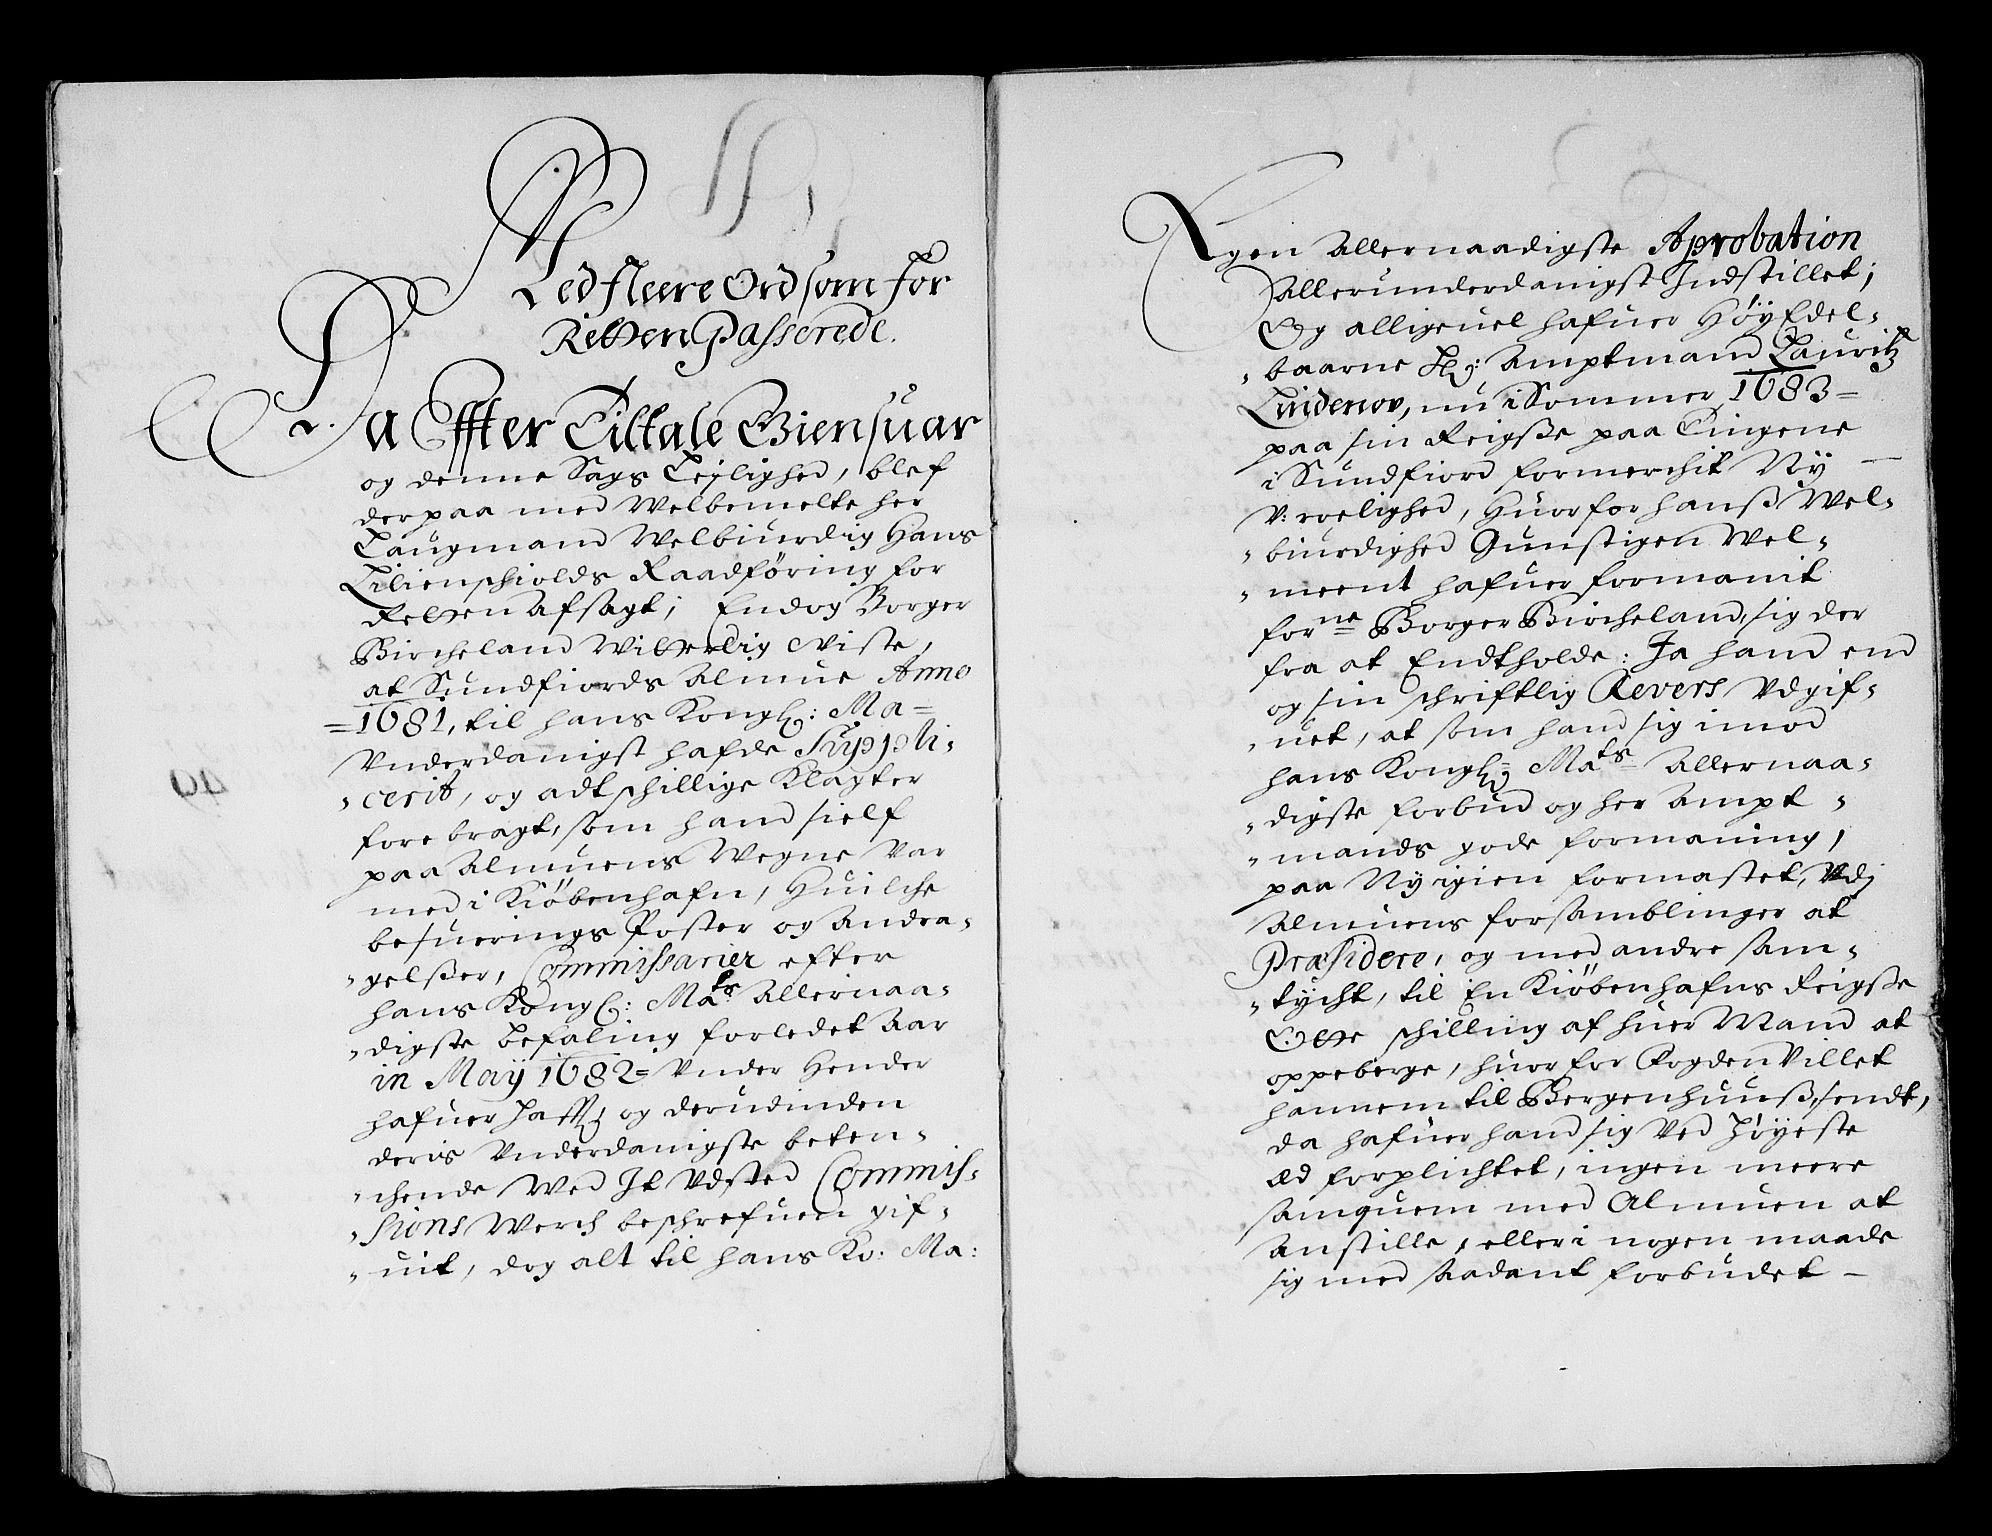 Med fleere Ord som for
Retten Passerede.
Da Effter Tiltale Giensuar
og denne Sags Leylighed, blef
der paa med Welbemelte her
Laugmand Welbiurdig Hans
Lilienschiolds Raadføring for
Retten Afsagt; Endog Borger
Bircheland Witterlig Viste,
at Sundfiords Almue Anno
=1681, til hans Kongl: Ma=
Vnderdanigst hafde Suppli-
- cerit, og adtschillige Klagter
forebragt, som hand sielf
paa Almuens Wegne Var
med i Kiøbenhafn, Huilche
besuerings Poster og Andra-
- gelsßer, Commissarier efter
hans Kongl: Mats Allernaa-
- digste befaling forledet Aar
in Maÿ 1682= Vnder Hender
hafuer haft og derudinden
deris Vnderdanigste beten-
- chende Wed It Vdsted Commis-
- sions Werch beschrefuen gif-
- uit, dog alt til hans Ko: Ma:
Egen Allernaadigste Aprobation
Allerunderdanigst Indstillet;
Og alligeuel hafuer HøyEdel-
- baarne Hr: Amptmand Lauritz
Lindenov, nu i Sommer 1683=
paa sin Reigsße paa Tingene
i Sundfiord formerchit Ny
V:roelighed, Huorfor hanß Wel-
- biurdighed Gunstigen Wel-
- meent hafuer formanit
forne Borger Bircheland, sig der
fra at Endtholde: Ja hand end
og sin schriftlig Revers Vdgif-
- uet, at som hand sig imod
hans Kongl= Mats= Allernaa-
- digste forbud og her Ampt -
- mands gode formaning,
paa Ny igien formastet, Vdj
Almuens forsamblinger at
Præsidere, og med andre sam-
- tycht, til En Kiøbenhafns Reigsße
Otte schilling af huer Mand at
oppeberge, huor for Fogden Villet
hannem til Bergenhuuß, sendt,
da hafuer hand sig Ved høyeste
Æd forplichtet, ingen meere
samquem med Almuen at
Anstille, eller i nogen maade
sig med saadant forbudet –